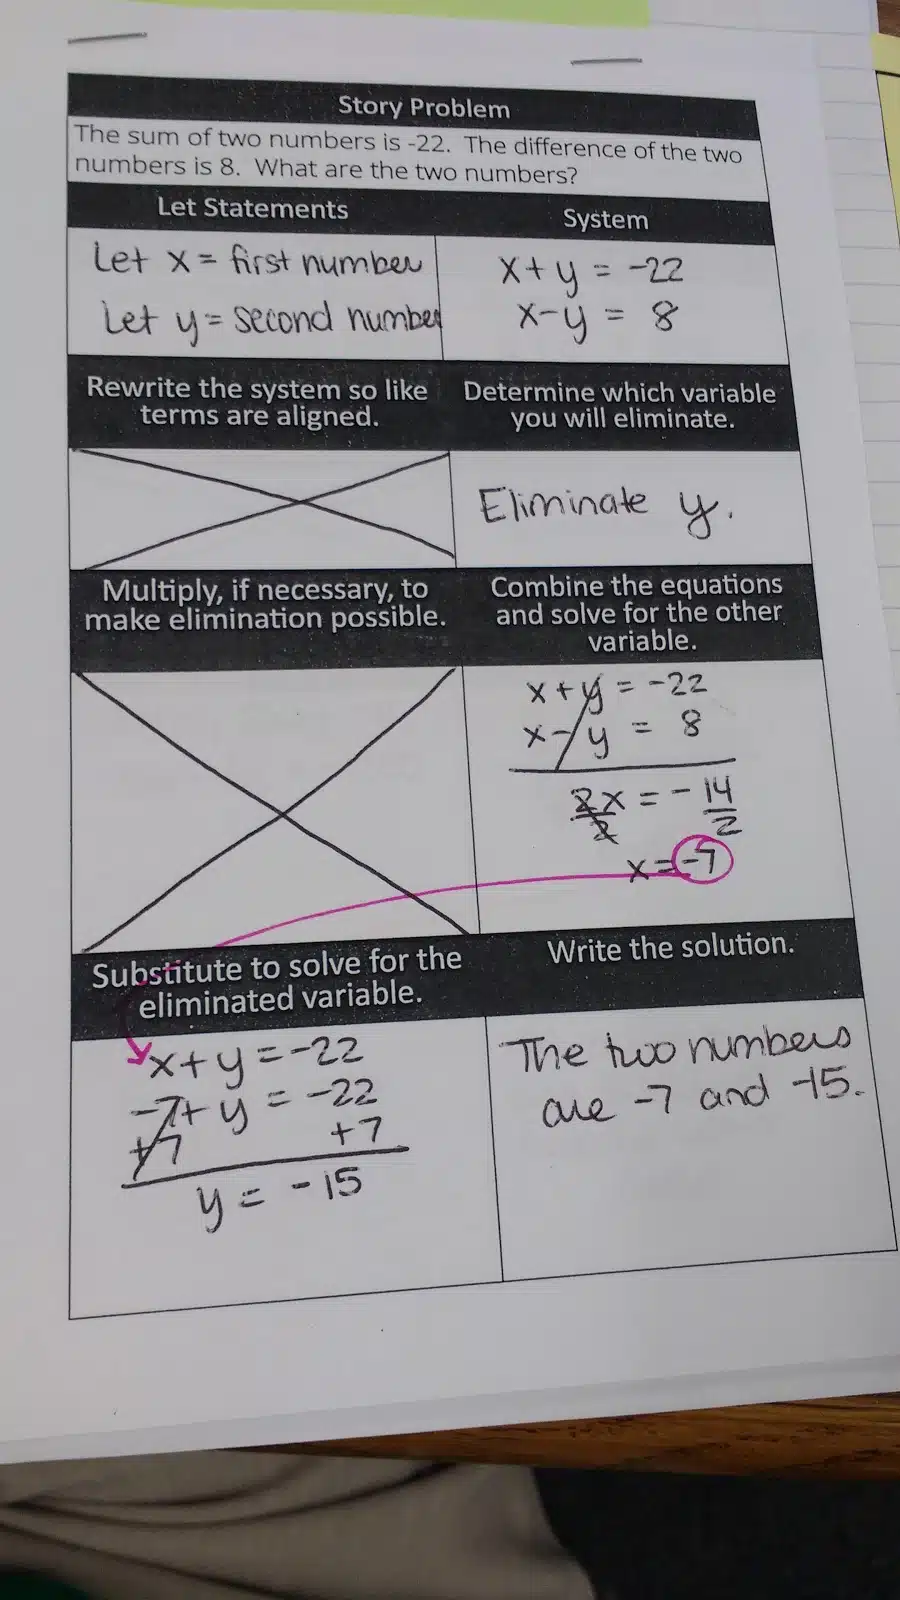 Story Problem
The sum of two numbers is -22. The difference of the two
numbers is 8. What are the two numbers?
Let Statements
Let x = first number
Let y = second number
System
x + y = -22
x - y = 8
Rewrite the system so like
terms are aligned.
Determine which variable
you will eliminate.
Eliminate y.
Multiply, if necessary, to
make elimination possible.
Combine the equations
and solve for the other
variable.
x + y = -22
x - y = 8
2x = -14
2 2
x = -7
Substitute to solve for the
eliminated variable.
x + y = -22
-7 + y = -22
+7 +7
y = -15
Write the solution.
The two numbers
are -7 and -15.